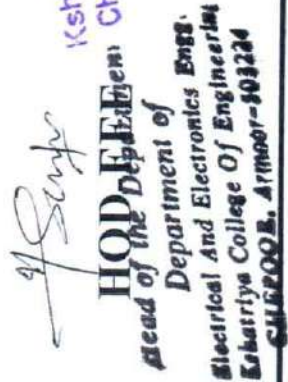 HOD EEE
Head of the Department
Department of
Electrical And Electronics Engg.
Kshatriya College Of Engineering
CHEPOOR, Armoor-503224
Ksh
Ch